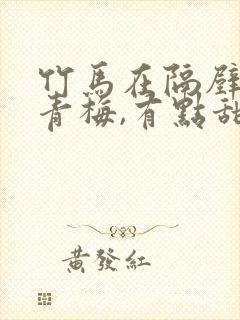 竹馬在隔壁
青梅,有點甜
黃發紅